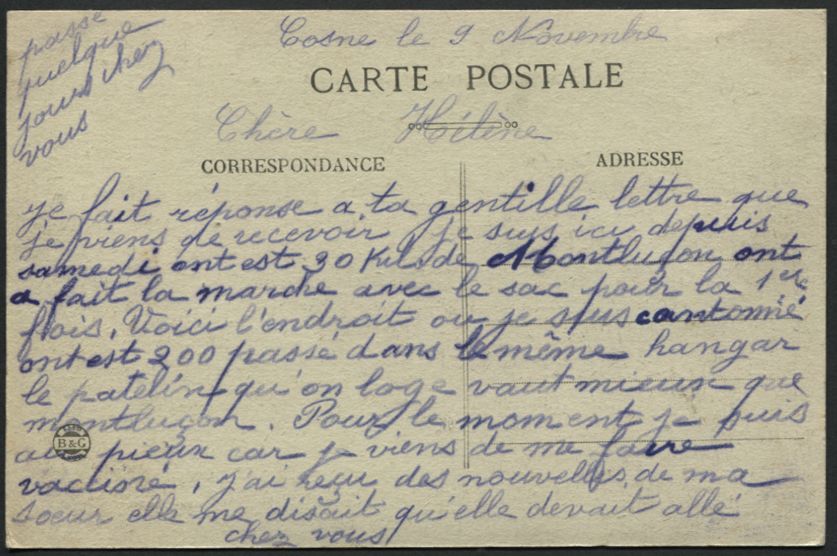 Cosne le 9 Novembre
CARTE POSTALE
Chère Hélène
CORRESPONDANCE
ADRESSE
je fait réponse a ta gentille lettre que
je viens de recevoir je suis ici depuis
samedi ont est 30 Kil de Montluçon ont
a fait la marche avec le sac pour la 1ere
fois, Voici l'endroit ou je suis cantonné
ont est 200 passé dans le même hangar
le patelin qu'on loge vaut mieux que
montluçon. Pour le moment je suis
au pieux car je viens de me faire
vacciné, j'ai reçu des nouvelles de ma
soeur elle me disait qu'elle devait allé
chez vous
passé
quelque
jours chez
vous
B&G